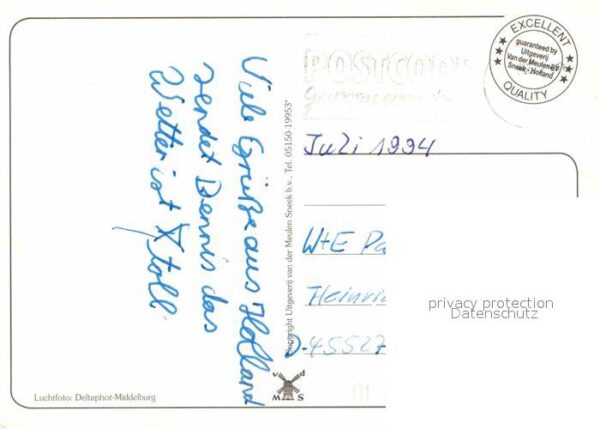 Viele Grüße aus Holland
sendet Dennis das
Wetter ist toll
Luchtfoto: Deltaphot-Middelburg
Copyright Uitgeverij van der Meulen Sneek b.v., Tel. 05150-19953*
v d
M S
EXCELLENT
guaranteed by
Uitgeverij
Van der Meulen bv
Sneek - Holland
QUALITY
POSTCODE
Juli 1994
W+E Pa
Heinri
D-45527
privacy protection
Datenschutz